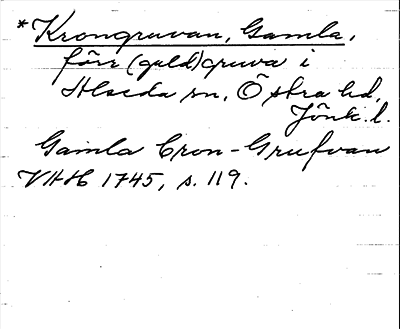 *Krongruvan, Gamla,
förr (guld)gruva i
Alseda sn, Östra hd,
Jönk. l.
Gamla Cron-Grufvan
VHH 1745, s. 119.